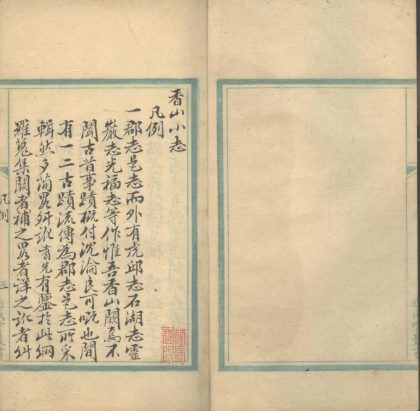 香山小志
凡例
一郡志邑志而外有虎邱志石湖志靈
巖志光福志等作惟吾香山闕焉不
聞古昔事蹟概付沈淪良可嘅也間
有一二古蹟流傳為郡志邑志所采
輯然多簡畧舛訛有光有鑒於此網
羅蒐集闕者補之畧者詳之訛者糾
凡例
一